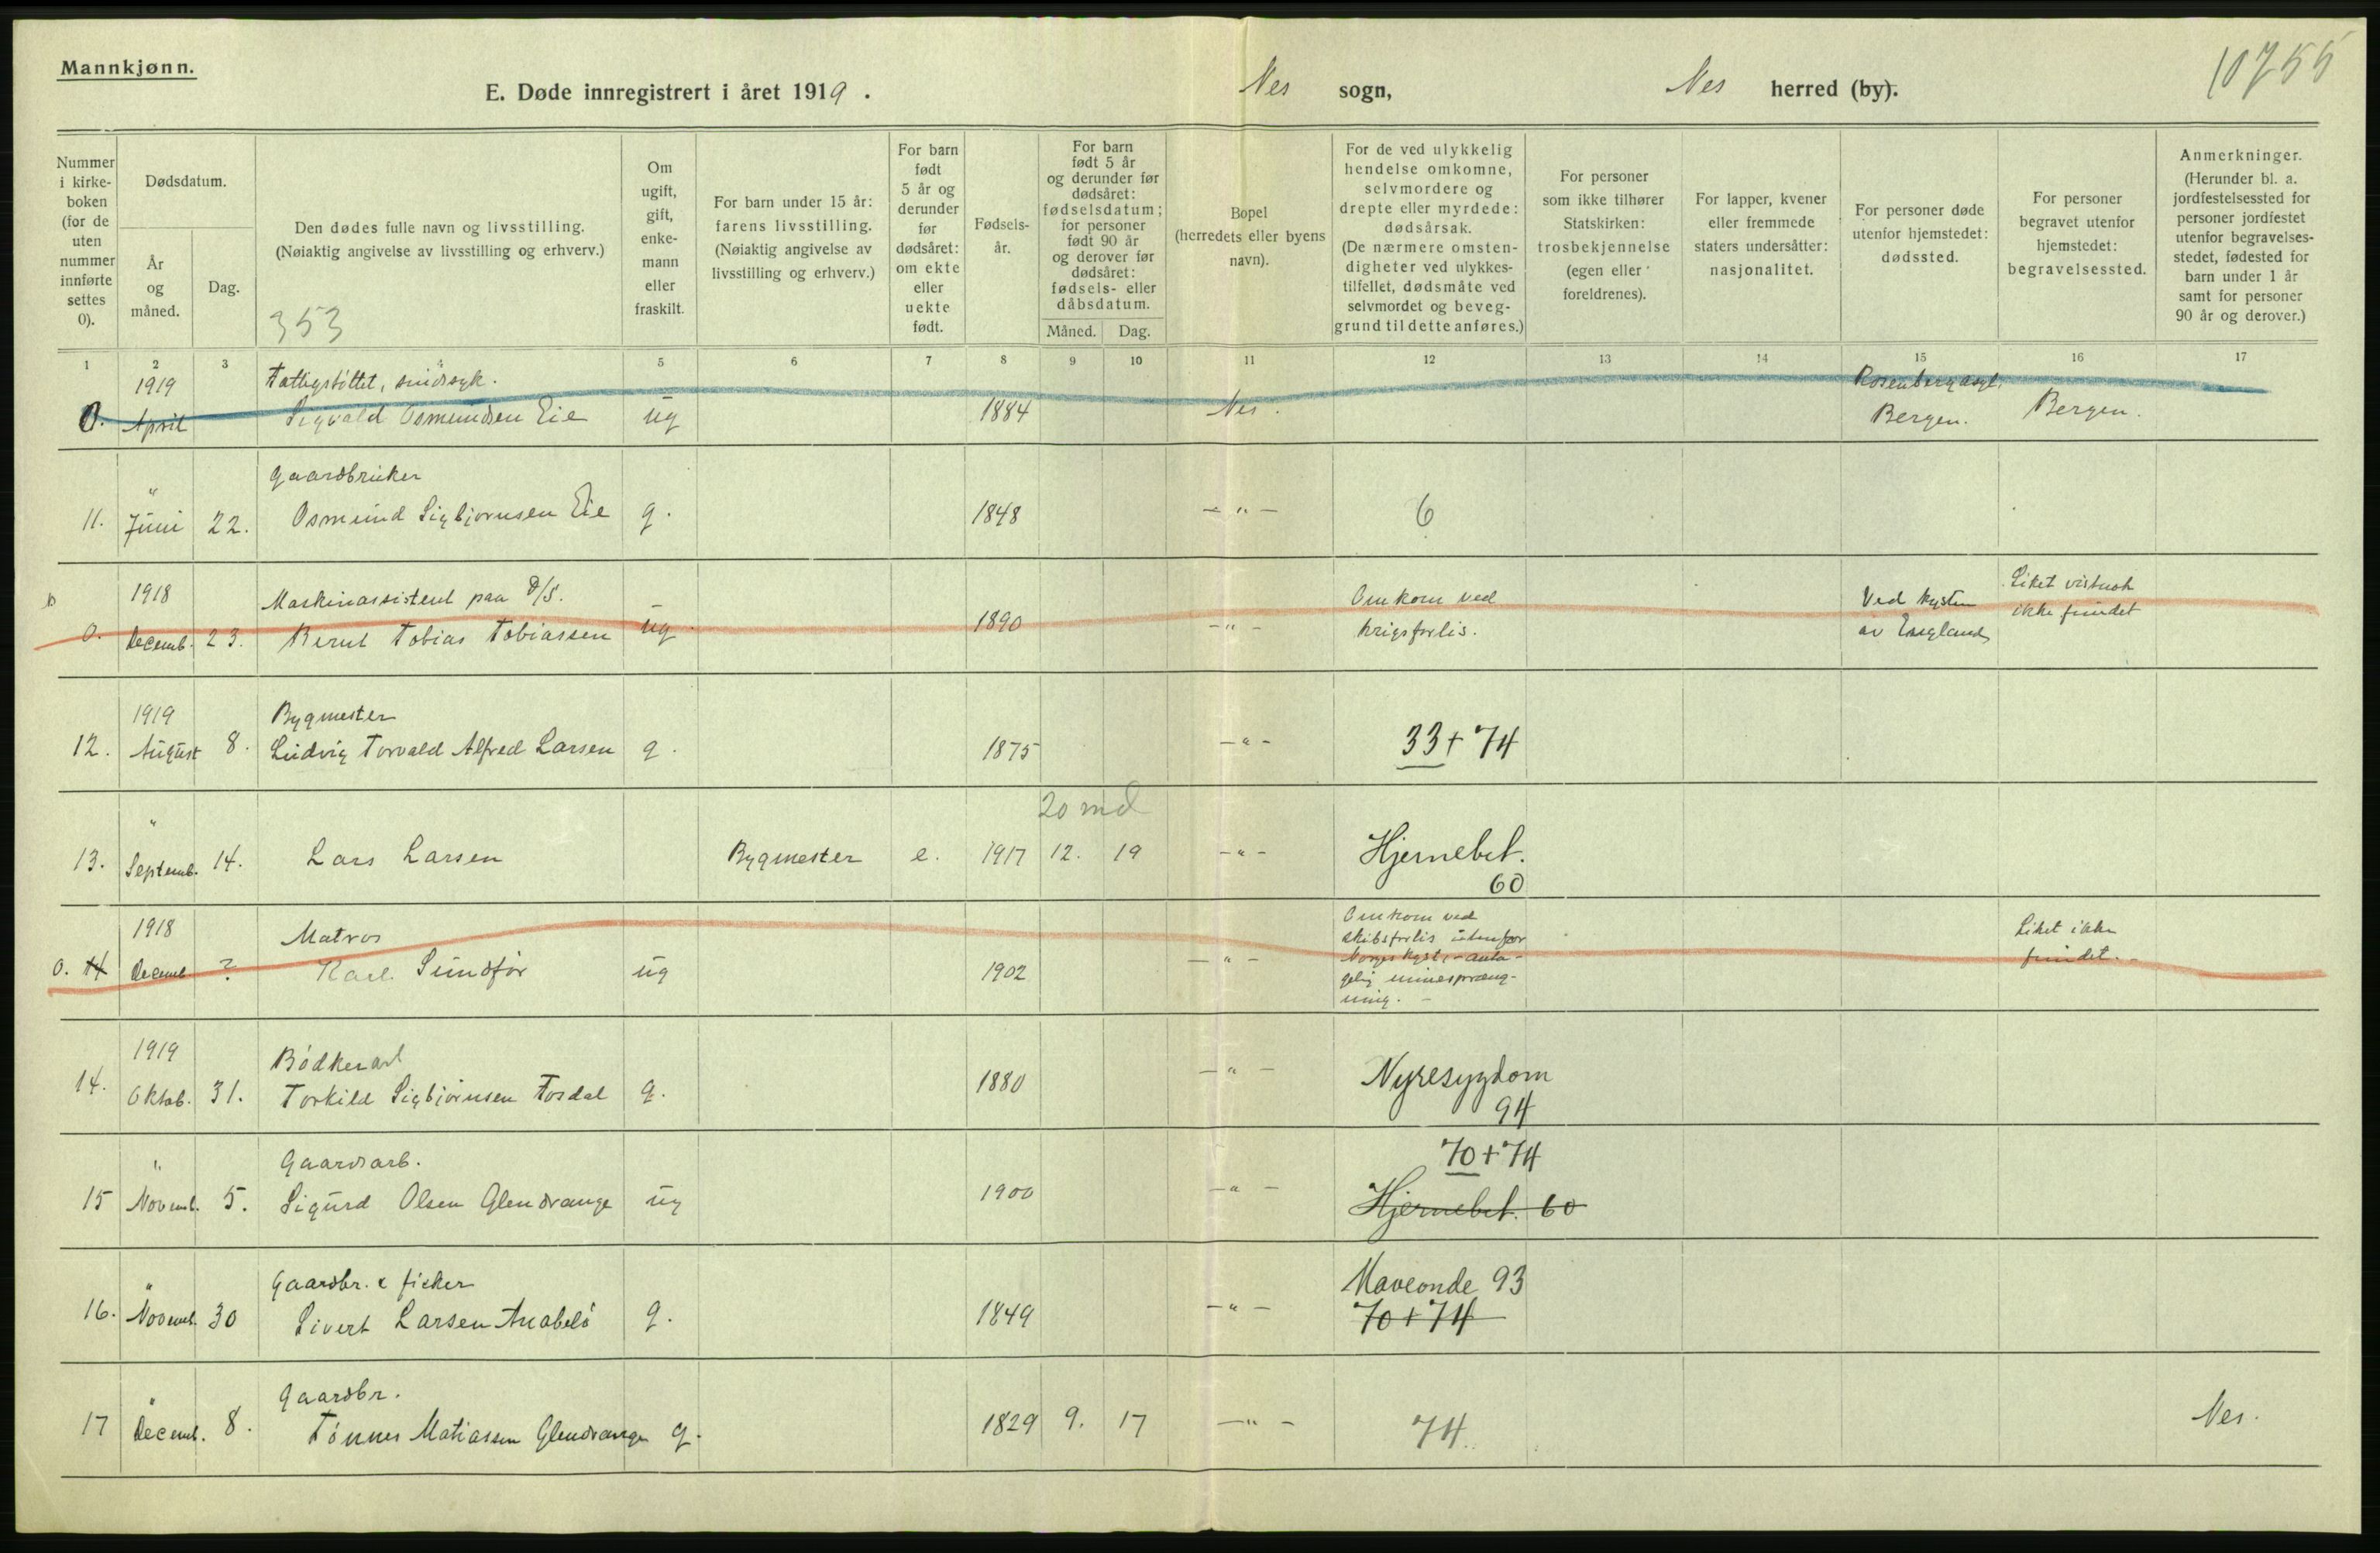 Mannkjønn.
10755
E. Døde innregistrert i året 1919. Nes sogn, Nes herred (by).
Nummer i kirke-boken (for de uten nummer innførte settes 0).
Dødsdatum.
År og måned.
Dag.
Den dødes fulle navn og livsstilling.
(Nøiaktig angivelse av livsstilling og erhverv.)
353
Om ugift, gift, enke-mann eller fraskilt.
For barn under 15 år: farens livsstilling. (Nøiaktig angivelse av livsstilling og erhverv.)
For barn født 5 år og derunder før dødsåret: om ekte eller uekte født.
Fødsels-år.
For barn født 5 år og derunder før dødsåret: fødselsdatum; for personer født 90 år og derover før dødsåret: fødsels- eller dåbsdatum.
Måned. Dag.
Bopel (herredets eller byens navn).
For de ved ulykkelig hendelse omkomne, selvmordere og drepte eller myrdede: dødsårsak. (De nærmere omsten-digheter ved ulykkes-tilfellet, dødsmåte ved selvmordet og beveg-grund til dette anføres.)
For personer som ikke tilhører Statskirken: trosbekjennelse (egen eller foreldrenes).
For lapper, kvener eller fremmede staters undersåtter: nasjonalitet.
For personer døde utenfor hjemstedet: dødssted.
For personer begravet utenfor hjemstedet: begravelsessted.
Anmerkninger. (Herunder bl. a. jordfestelsessted for personer jordfestet utenfor begravelses-stedet, fødested for barn under 1 år samt for personer 90 år og derover.)
1 2 3 4 5 6 7 8 9 10 11 12 13 14 15 16 17
1919 Fattigstøttet, sindssyk. Rosenberg asyl,
0. April Sigvald Osmundsen Eie ug 1884 Nes. Bergen. Bergen.
" Gaardbruker
11. Juni 22. Osmund Sigbjørnsen Eie g. 1848 - " - 6
1918 Maskinassistent paa D/S. Omkom ved Ved kysten Liket vistnok
0. Decemb. 23. Bernt Tobias Tobiassen ug 1890 - " - krigsforlis. av England ikke fundet
1919 Bygmester
12. August 8. Ludvig Torvald Alfred Larsen g. 1875 - " - 33 + 74
" 20 md
13. Septemb. 14. Lars Larsen Bygmester e. 1917 12. 19 - " - Hjernebet.
60
1918 Matros Omkom ved skibsforlis utenfor Liket ikke
0. 14 Decemb ? Karl Sundfør ug 1902 - " - Norges kyst, - anta- fundet. -
gelig minespræng-
ning. -
1919 Bødkerarb
14. Oktob. 31. Torkild Sigbjørnsen Tosdal g. 1880 - " - Nyresygdom
94
" Gaardsarb. 70 + 74
15 Novemb. 5. Sigurd Olsen Glendrange ug 1900 - " - Hjernebet. 60
" Gaardbr. & fisker Maveonde 93
16. Novemb. 30 Sivert Larsen Anabelø g. 1849 - " - 70 + 74
" Gaardbr.
17 Decemb. 8. Tønnes Matiassen Glendrange g. 1829 9. 17 - " - 74. Nes.